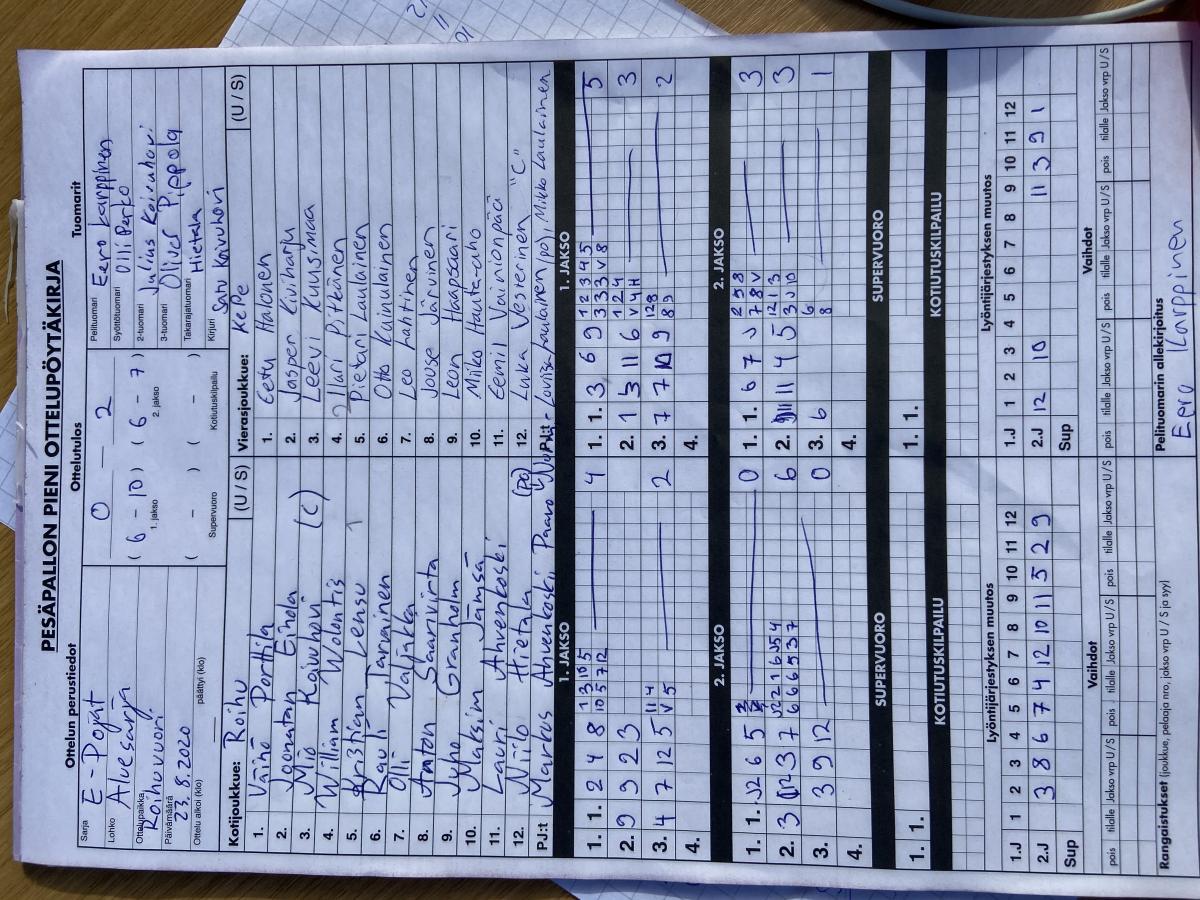 PESÄPALLON PIENI OTTELUPÖYTÄKIRJA
Ottelun perustiedot
Sarja E-Pojat
Lohko Aluesarja
Ottelupaikka Roihuvuori
Päivämäärä 23.8.2020
Ottelu alkoi (klo) päättyi (klo)
Ottelutulos
0 – 2
(6 – 10) (6 – 7)
1. jakso 2. jakso
( – ) ( – )
Supervuoro Kotiutuskilpailu
Tuomarit
Pelituomari Eero Karppinen
Syöttötuomari Olli Perko
2-tuomari Julius Koivuhovi
3-tuomari Oliver Pippola
Takarajatuomari Hietala
Kirjuri Satu Koivuhovi
Kotijoukkue: Roihu (U / S)
1. Väinö Porttila
2. Joonatan Eihola
3. Miö Koivuhovi (C)
4. William Wolontis
5. Kristian Lensu
6. Rauli Tarvainen
7. Olli Valjakka
8. Anton Saarivirta
9. Juho Granholm
10. Maksim Jämsä
11. Lauri Ahvenkoski
12. Niilo Hietala
PJ:t Markus Ahvenkoski, Paavo (po)
Vierasjoukkue: KePe (U / S)
1. Eetu Halonen
2. Jasper Kiviharju
3. Leevi Kuusjmaa
4. Ilari Pitkänen
5. Pietari Laulainen
6. Otto Kainulainen
7. Leo Lanttinen
8. Jouse Järvinen
9. Leon Haapasaari
10. Miiko Hauta-aho
11. Eemil Vainionpää
12. Luka Vesterinen "C"
PJ:t Laulainen (po), Mikko Laulainen
1. JAKSO
1. 1. 2 4 8 1 3 10 5 4
10 5 7 12
2. 9 9 2 3
3. 4 7 12 5 11 4 2
V 5
4.
1. JAKSO
1. 1. 3 6 9 1 2 3 4 5 5
3 3 3 V 8
2. 1 3 11 6 1 2 4 3
V 4 H
3. 7 7 10 9 128 2
8 9
4.
2. JAKSO
1. 1. J2 6 5 0
2. 3 3 7 6
6 6 6 5 3 7
3. 3 9 12 0
4.
2. JAKSO
1. 1. 6 7 J 2 5 8 3
7 8 V
2. 11 4 5 12 1 3 3
3 J 10
3. 6 6 1
8
4.
SUPERVUORO
1. 1.
SUPERVUORO
1. 1.
KOTIUTUSKILPAILU
KOTIUTUSKILPAILU
Lyöntijärjestyksen muutos
1.J 1 2 3 4 5 6 7 8 9 10 11 12
2.J 3 8 6 7 4 12 10 11 5 2 9
Sup
Lyöntijärjestyksen muutos
1.J 1 2 3 4 5 6 7 8 9 10 11 12
2.J 12 10 11 3 9 1
Sup
Vaihdot
pois tilalle Jakso vrp U / S pois tilalle Jakso vrp U / S pois tilalle Jakso vrp U / S
Vaihdot
pois tilalle Jakso vrp U / S pois tilalle Jakso vrp U / S pois tilalle Jakso vrp U / S
Rangaistukset (joukkue, pelaaja nro, jakso vrp, U / S ja syy)
Pelituomarin allekirjoitus
Eero Karppinen